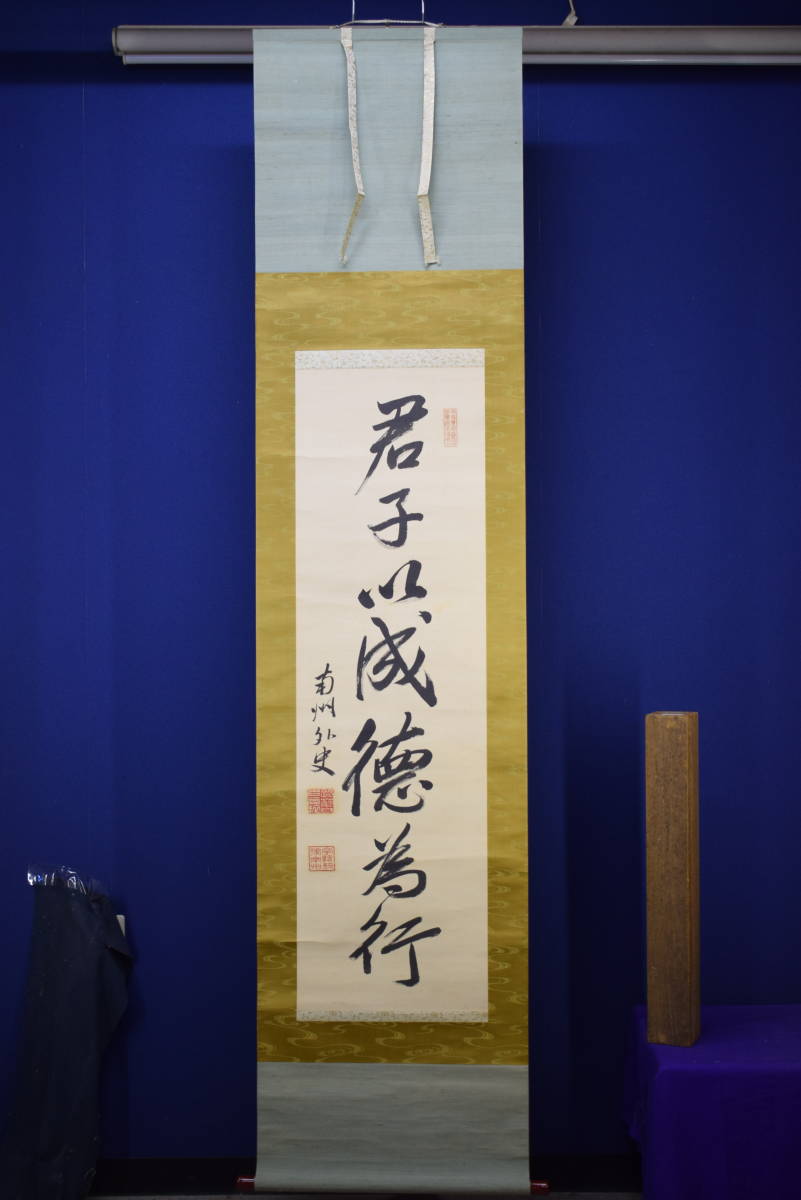 君子以成德為行
南州外史